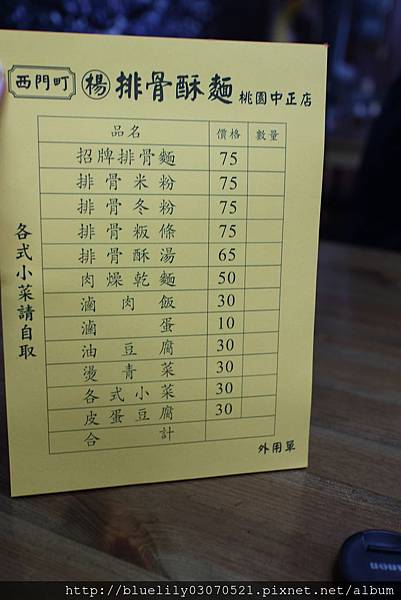 西門町 楊 排骨酥麵 桃園中正店
品名 價格 數量
招牌排骨麵 75
排骨米粉 75
排骨冬粉 75
排骨粄條 75
排骨酥湯 65
肉燥乾麵 50
滷肉飯 30
滷蛋 10
油豆腐 30
燙青菜 30
各式小菜 30
皮蛋豆腐 30
合計
各式小菜請自取
外用單
canon
http://bluelily03070521.pixnet.net/album